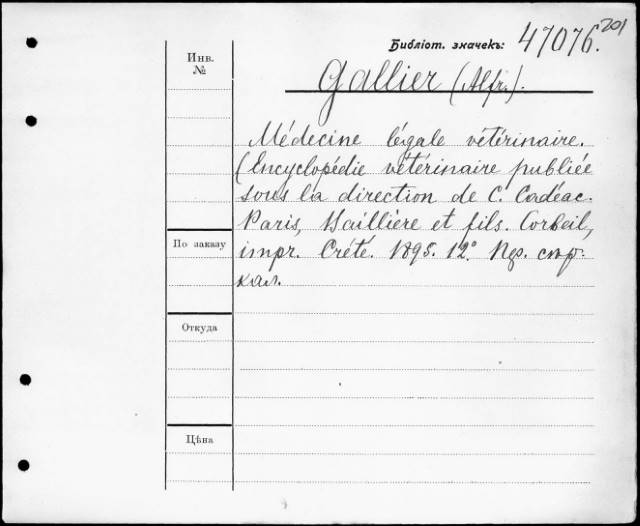 Библіот. значекъ: 47076. 201
Инв. №
Gallier (Alfr.).
Médecine légale vétérinaire.
(Encyclopédie vétérinaire publiée
sous la direction de C. Cadéac.
Paris, Baillière et fils. Corbeil,
По заказу
impr. Crété. 1895. 12°.
кал.
Откуда
Цѣна